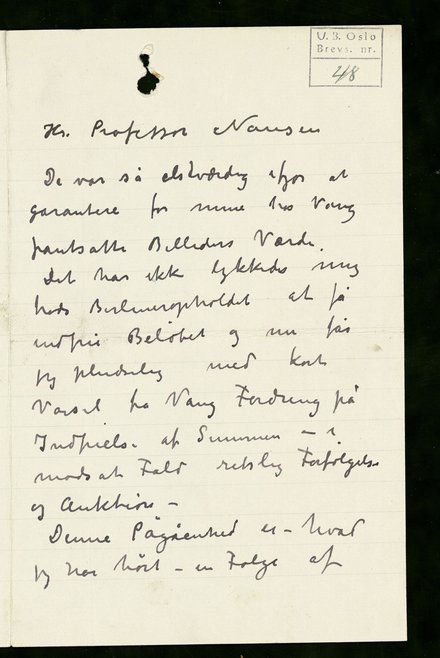 U. B. Oslo
Brevs. nr.
48
Hr. Professor Nansen
De var så elskværdig ifjor at
garantere for mine hos Vang
pantsatte Billeders Værdi.
Det har ikke lykkedes mig
trods Berlineropholdet at få
indfri Beløbet og nu får
jeg pludselig med kort
Varsel fra Vang Fordring på
Indfrielse af Summen – i
modsat Fald retslig Forfølgelse
og Auktion –
Denne Pågåenhed er – hvad
jeg har hört – en Følge af